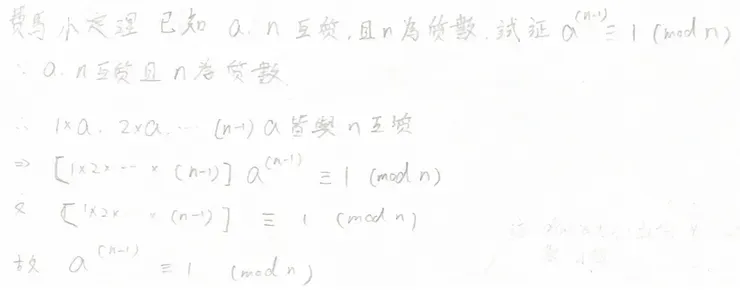 費馬小定理 已知 a. n 互質,且n為質數.試証 a^(n-1) ≡ 1 (mod n)
∵ a. n互質且 n 為質數
∴ 1×a. 2×a. … (n-1) a 皆與 n 互質
⇒ [1×2×…×(n-1)] a^(n-1) ≡ 1 (mod n)
又 [1×2×…×(n-1)] ≡ 1 (mod n)
故 a^(n-1) ≡ 1 (mod n)